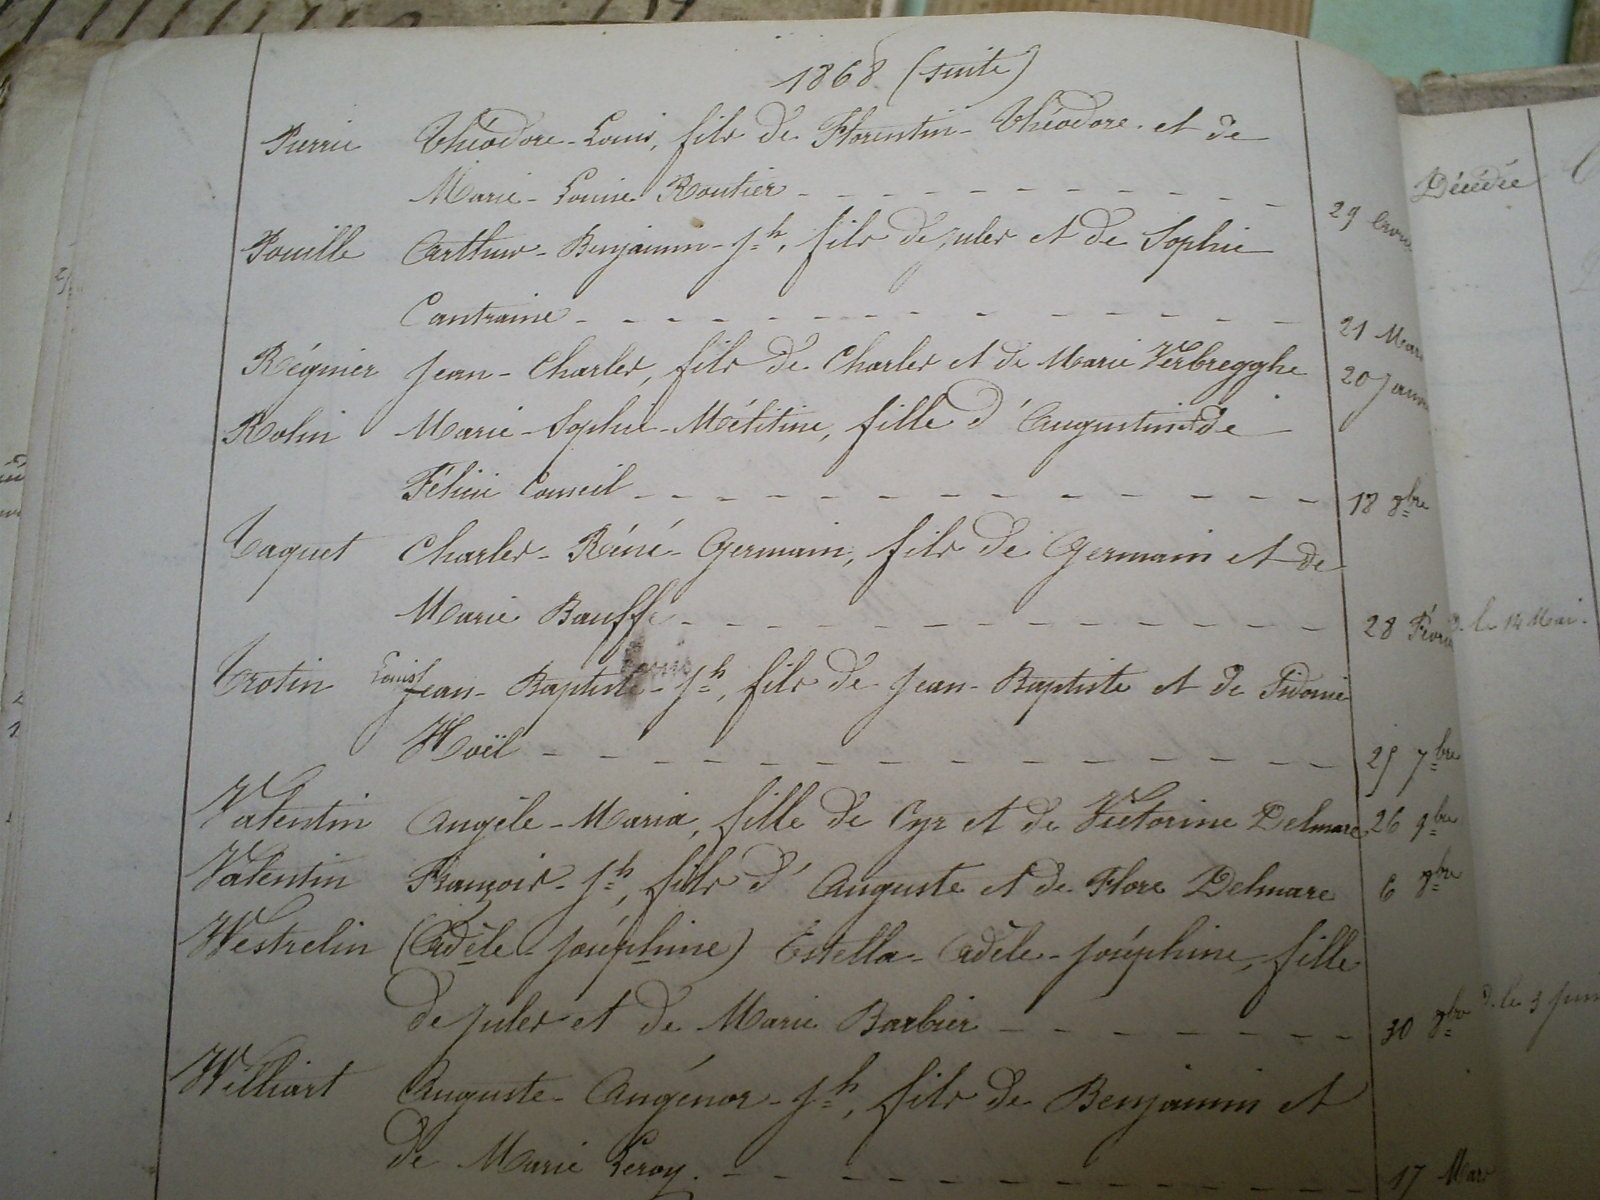 1868 (suite)
Pierrie Théodore-Louis, fils de Florentin-Théodore et de
Marie-Louise Routier 29
Décédée
Pouille Arthur-Benjamin-Jh, fils de Jules et de Sophie
Cantraine 21 Mars
Régnier Jean-Charles, fils de Charles et de Marie Verbregghe 20 Janv
Rohin Marie-Sophie-Mélitine, fille d'Augustin et de
Félicie Conseil 18 8bre
Taquet Charles-Réné-Germain, fils de Germain et de
Marie Bauffe 28 Févri d. le 14 Mai.
Trotin Louis Jean-Baptiste-Jh, fils de Jean-Baptiste et de Sidonie
Noël 25 7bre
Valentin Angèle-Maria, fille de Cyr et de Victorine Delmare 26 9bre
Valentin François-Jh, fils d'Auguste et de Flore Delmare 6 8bre
Westrelin (Adèle-Joséphine) Estella-Adèle-Joséphine, fille
de Jules et de Marie Barbier 30 8bre d. le 3 Juin
Williart Auguste-Angénor-Jh, fils de Benjamin et
de Marie Leroy. 17 Mars